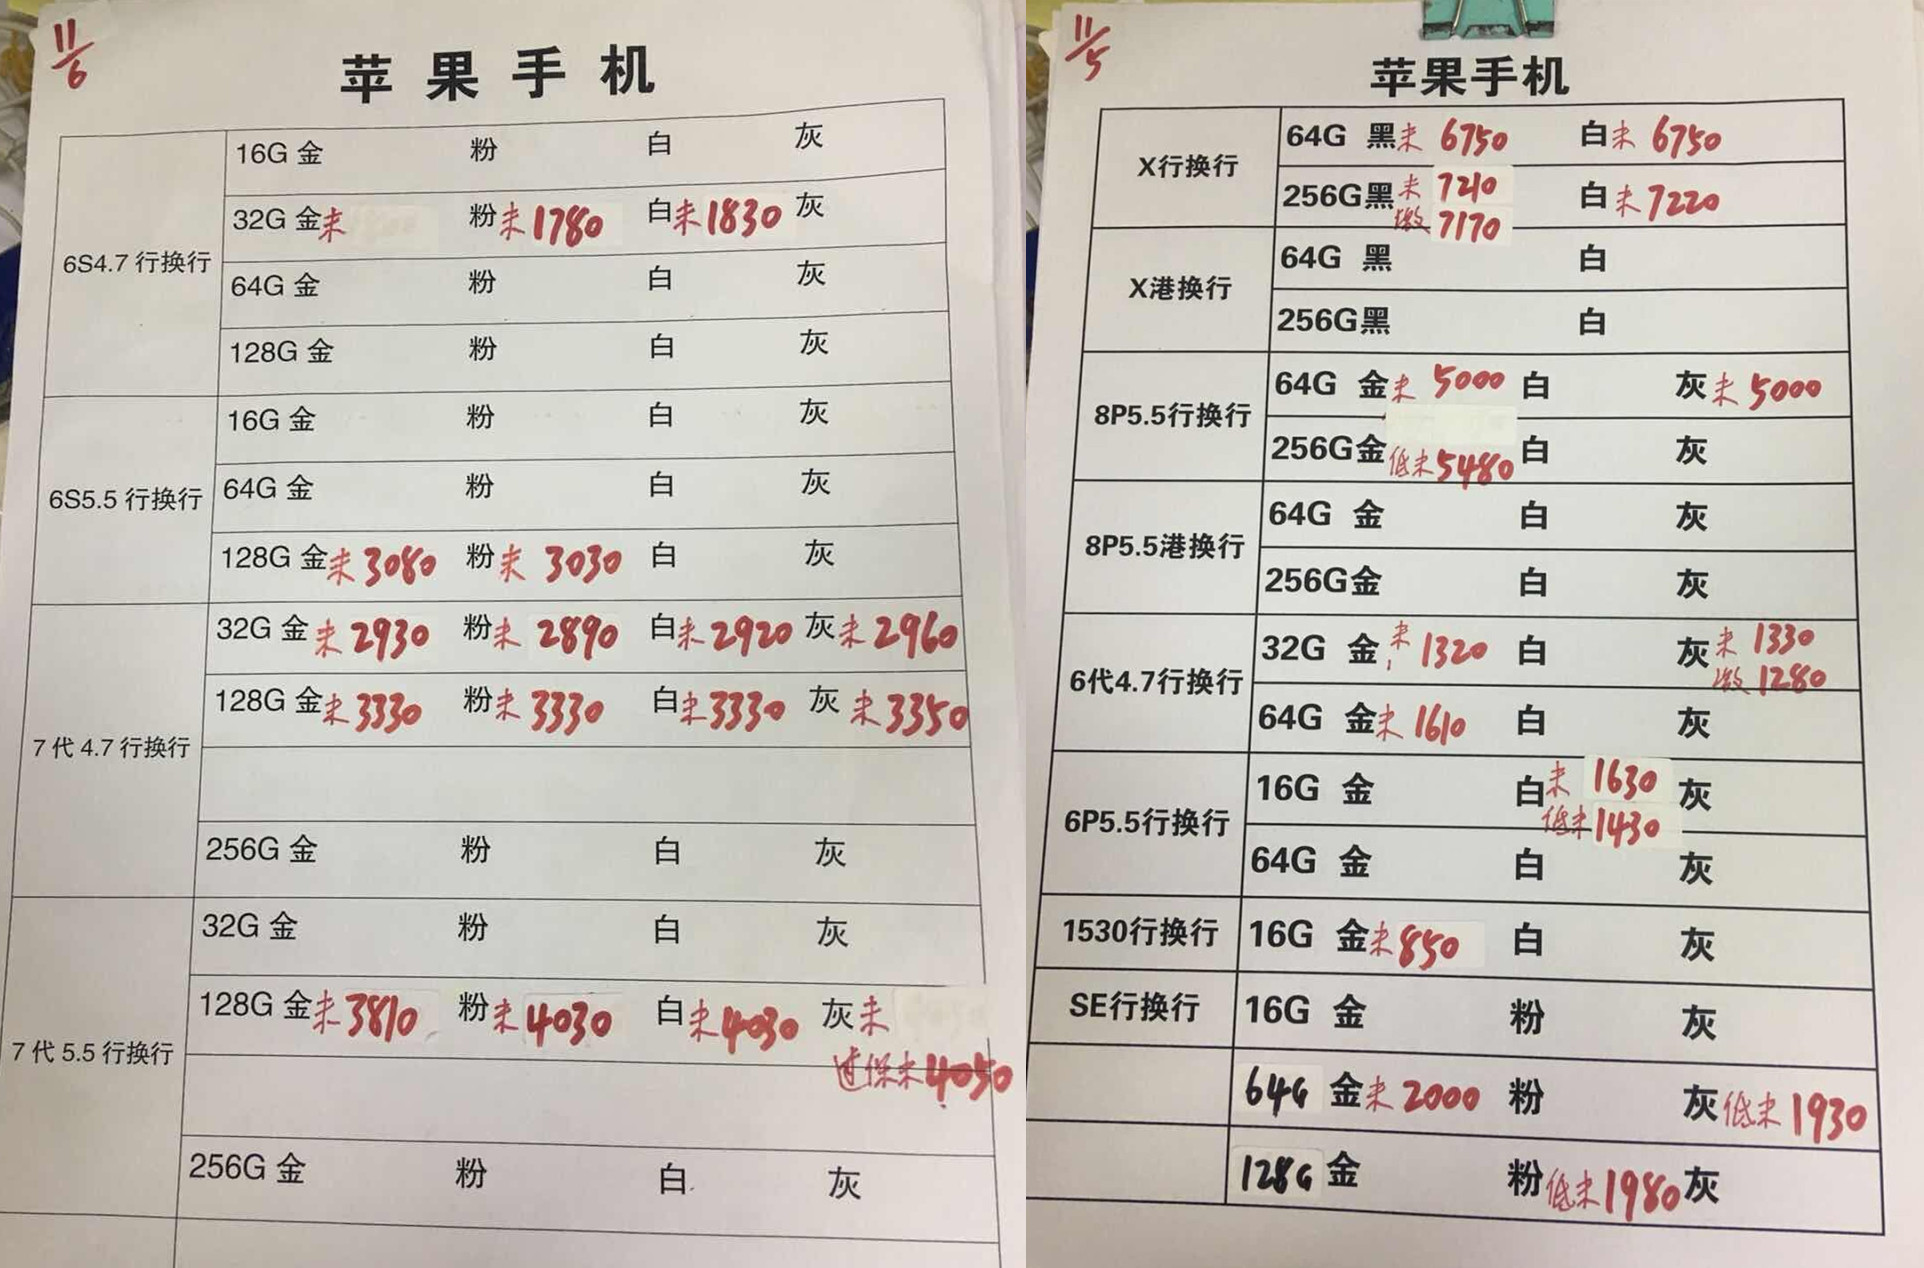 11/6
苹果手机
6S4.7行换行
16G 金 粉 白 灰
32G 金未 粉未1780 白未1830 灰
64G 金 粉 白 灰
128G 金 粉 白 灰
6S5.5行换行
16G 金 粉 白 灰
64G 金 粉 白 灰
128G 金未3080 粉未3030 白 灰
7代4.7行换行
32G 金未2930 粉未2890 白未2920 灰未2960
128G 金未3330 粉未3330 白未3330 灰未3350
256G 金 粉 白 灰
7代5.5行换行
32G 金 粉 白 灰
128G 金未3810 粉未4030 白未4030 灰未
过保未4050
256G 金 粉 白 灰
11/5
苹果手机
X行换行
64G 黑未6750 白未6750
256G黑未7210 白未7220
激7170
X港换行
64G 黑 白
256G黑 白
8P5.5行换行
64G 金未5000 白 灰未5000
256G金 白 灰
低未5480
8P5.5港换行
64G 金 白 灰
256G金 白 灰
6代4.7行换行
32G 金未1320 白 灰未1330
激1280
64G 金未1610 白 灰
6P5.5行换行
16G 金 白未1630 灰
低未1430
64G 金 白 灰
1530行换行
16G 金未850 白 灰
SE行换行
16G 金 粉 灰
64G 金未2000 粉 灰低未1930
128G 金 粉低未1980 灰